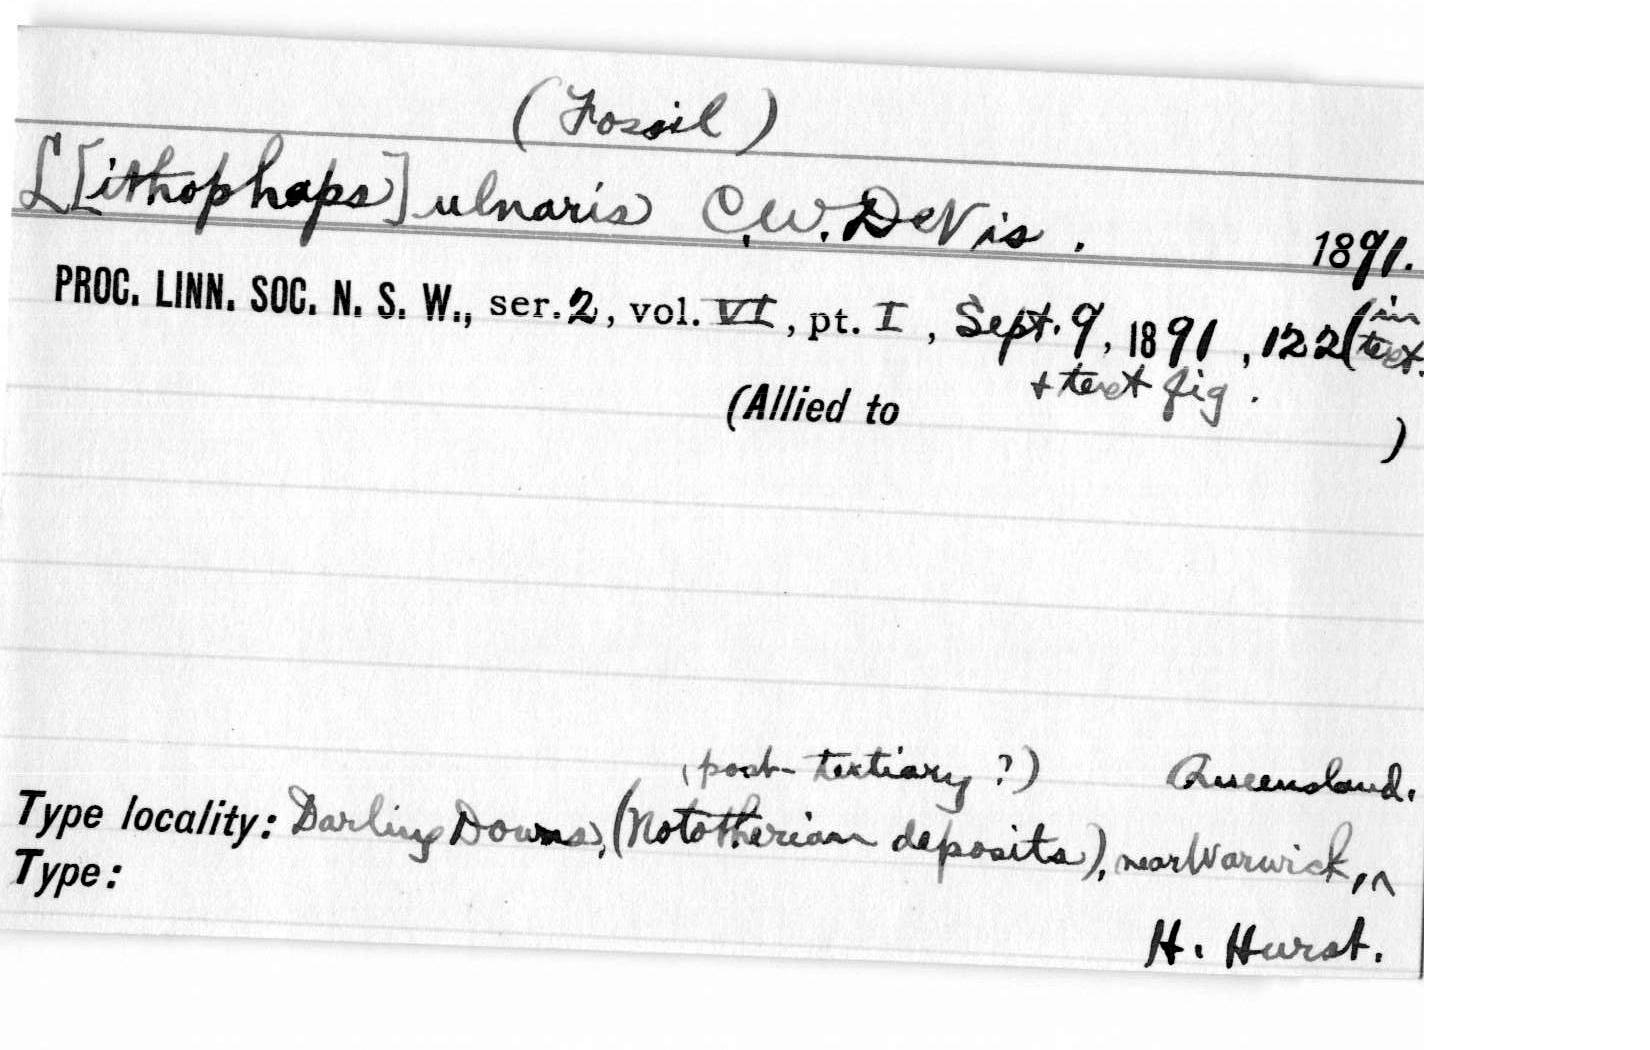 (Fossil)
L[ithophaps] ulnaris C.W. DeVis. 1891.
PROC. LINN. SOC. N. S. W., ser. 2, vol. VI, pt. I, Sept. 9, 1891, 122 (in text.
+ text fig.
(Allied to )
(post-tertiary?) Queensland.
Type locality: Darling Downs, (Nototherian deposits), near Warwick, ^
Type:
H. Hurst.